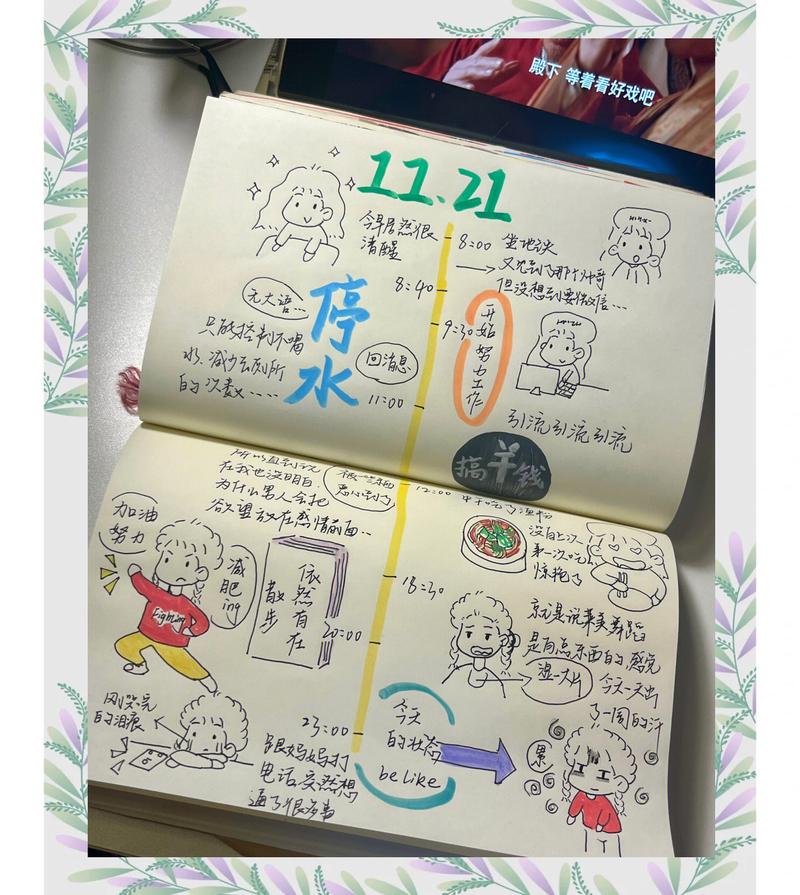 殿下 等着看好戏吧
11.21
今早居然很
清醒
8:00 坐地铁
又见到了那个帅哥
但没想到要微信...
8:40
无大语...
停水
只能控制不喝
水、减少去厕所
的次数.....
回消息
9:30
开始努力工作
11:00
引流引流引流
搞羊钱
在我也没明白
为什么男人会把
欲望放在感情前面..
12:00 中午吃了
没有上次
第一次吃
惊艳了
加油
努力
减肥ing
Fighting
依然有在
散步
18:30
就是说
是有点东西的,感觉
今天一天出
了一周的汗
湿一大片
20:00
刚哭完
的泪痕
23:00
跟妈妈打
电话突然想
通了很多事
今天
的状态
be like
累